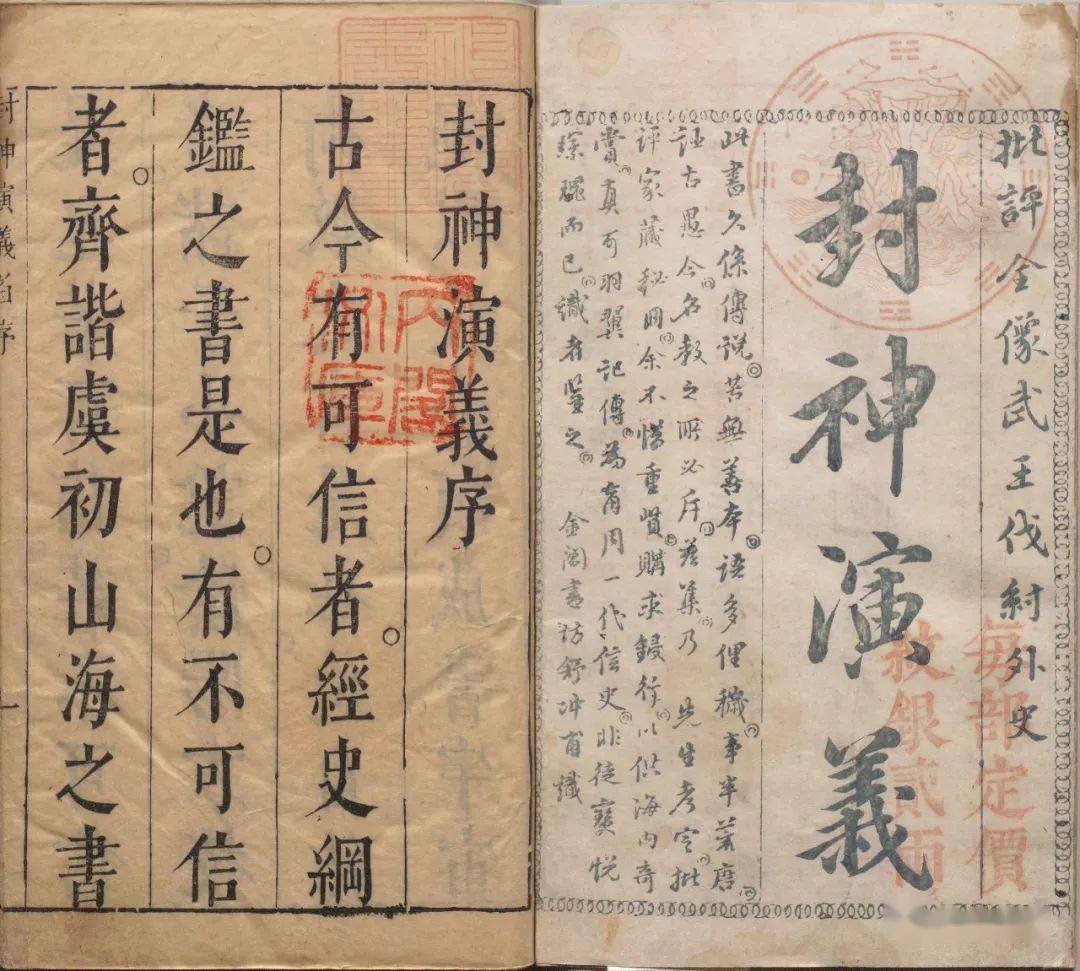 批評全像武王伐紂外史
封神演義
每部定價
紋銀貳兩
此書久係傳說。苦無善本。語多俚穢。事半荒唐。
誣古愚今。名教之所必斥。茲集乃 先生考定批
評家藏秘冊。余不惜重貲購求鋟行。以供海內奇
賞。真可羽翼記傳。為商周一代信史。非徒寶悅
琛瓌而已。識者鑒之。 金閶書坊舒冲甫識
封神演義序
古今有可信者。經史綱
鑑之書是也。有不可信
者。齊諧虞初山海之書
封神演義 序 一